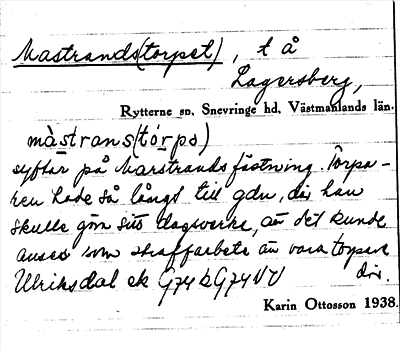 Mastrands(torpet), t å
Lagersberg,
Rytterne sn, Snevringe hd, Västmanlands län.
màstrans(tórpə)
syftar på Marstrands fästning. Torpa-
ren hade så långt till gdn, där han
skulle göra sitt dagsverke, att det kunde
anses som straffarbete att vara torpare
Ulriksdal ek G74 b G74 VV där.
Karin Ottosson 1938.